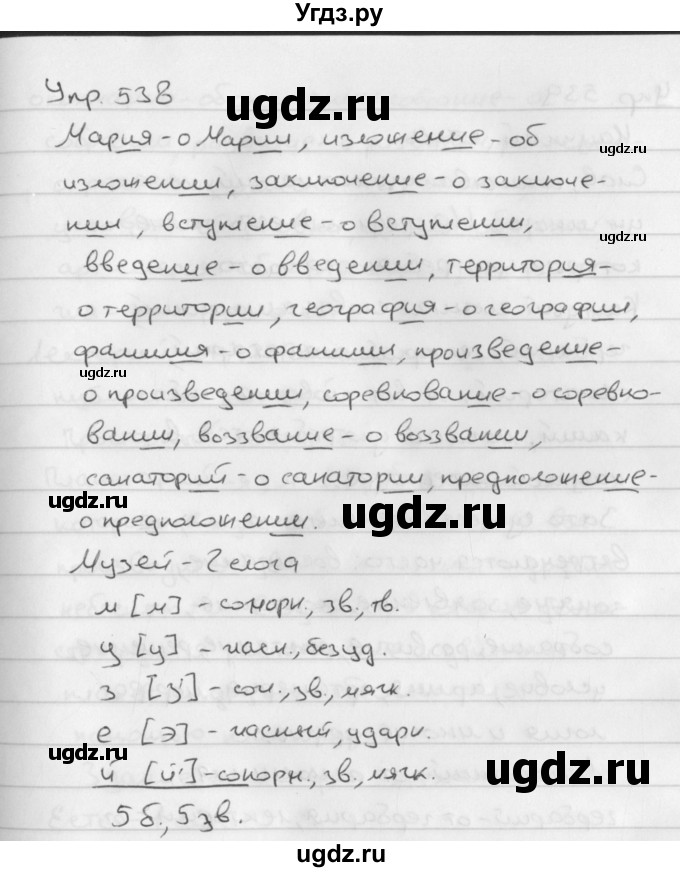 Угдз.ру
Упр. 538
ugdz.ru
Мария - о Марии, изложение - об
ugdz.ru
изложении, заключение - о заключе-
нии, вступление - о вступлении,
ugdz.ru
введение - о введении, территория -
о территории, география - о географии,
фамилия - о фамилии, произведение -
ugdz.ru
о произведении, соревнование - о соревно-
вании, воззвание - о воззвании,
санаторий - о санатории, предположение -
ugdz.ru
о предположении.
ugdz.ru
Музей - 2 слога
м [м] - сонорн., зв., тв.
у [у] - гласн., безуд.
з [з'] - сон., зв., мягк.
е [э] - гласный, ударн.
ugdz.ru
й [й'] - сонорн., зв., мягк.
ugdz.ru
5 б., 5 зв.
ugdz.ru